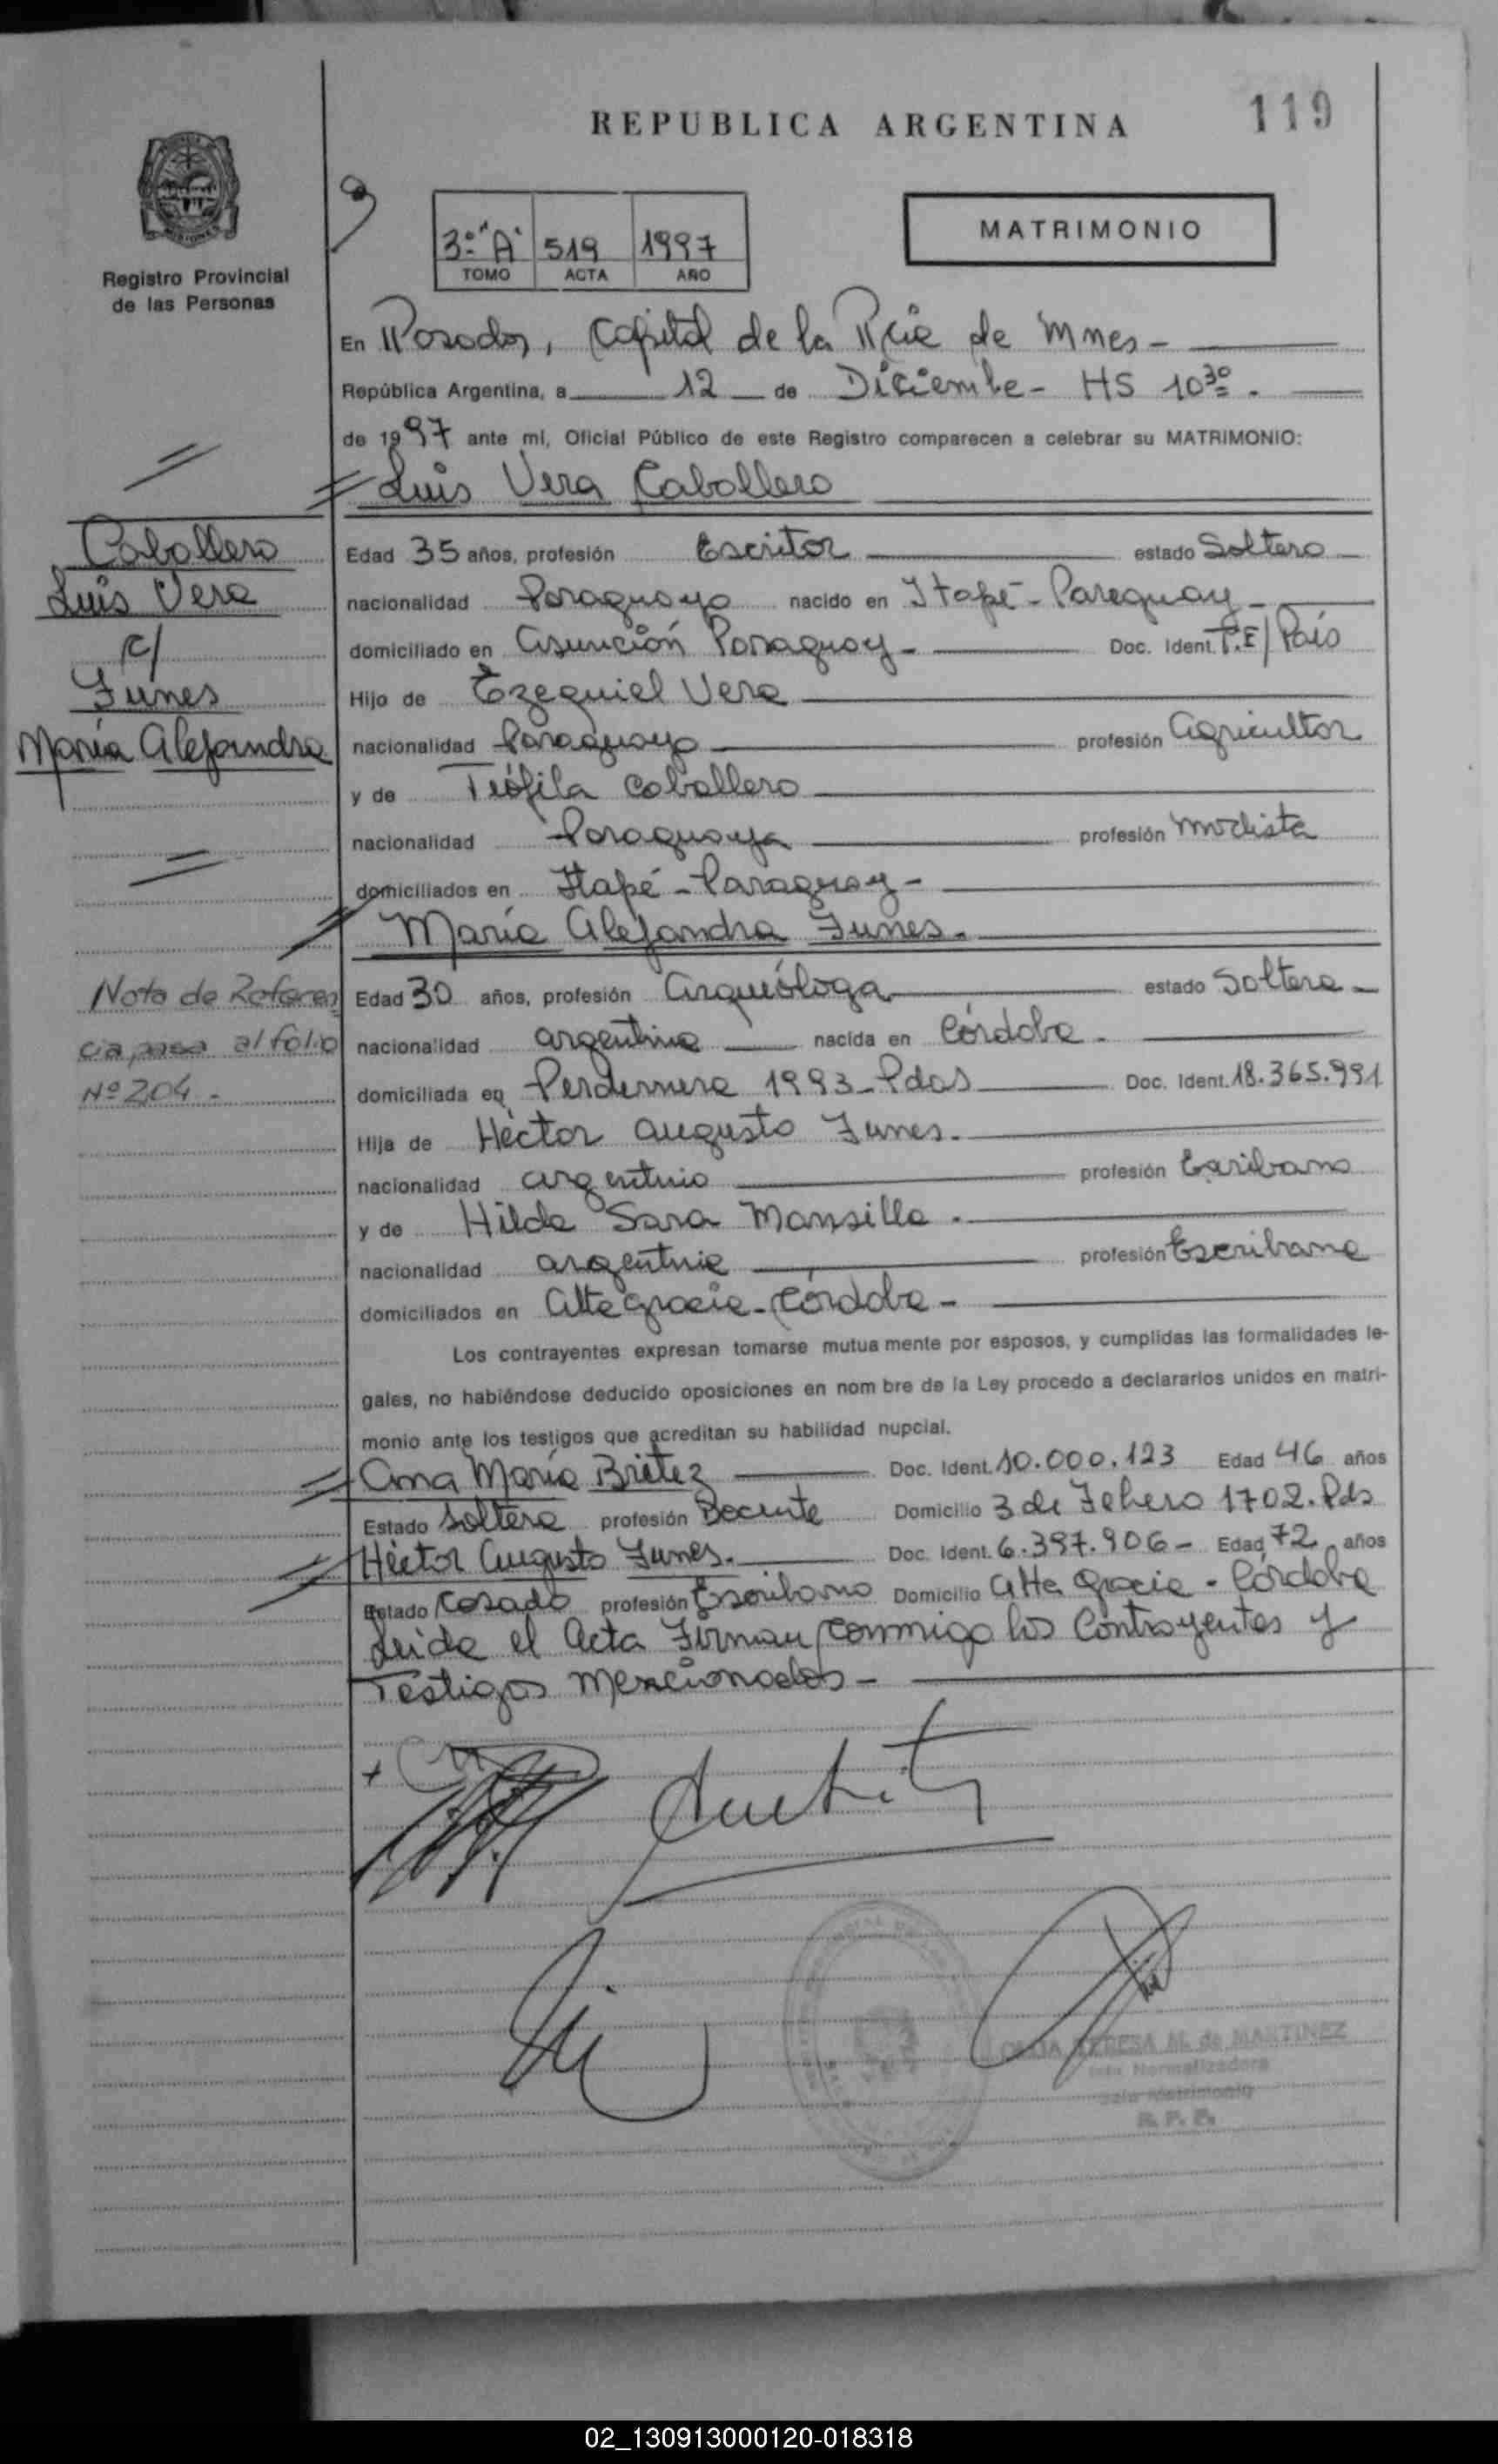 REPUBLICA ARGENTINA
119
3º "A" 519 1997
TOMO ACTA AÑO
MATRIMONIO
Registro Provincial
de las Personas
En Posadas, Capital de la Pcia de Mnes-
República Argentina, a 12 de Diciembre - HS 10³⁰.
de 1997 ante mí, Oficial Público de este Registro comparecen a celebrar su MATRIMONIO:
Luis Vera Caballero
Caballero
Luis Vera
c/
Funes
María Alejandra
Edad 35 años, profesión Escritor estado Soltero
nacionalidad Paraguaya nacido en Itapé - Paraguay -
domiciliado en Asunción Paraguay - Doc. Ident. P.E/País
Hijo de Ezequiel Vera
nacionalidad Paraguaya profesión Agricultor
y de Teófila Caballero
nacionalidad Paraguaya profesión Modista
domiciliados en Itapé - Paraguay -
María Alejandra Funes.
Nota de Referen
cia, pasa al folio
Nº 204.-
Edad 30 años, profesión Arqueóloga estado Soltera
nacionalidad argentina nacida en Córdoba.
domiciliada en Perdernera 1993 - Pdas Doc. Ident. 18.365.991
Hija de Héctor Augusto Funes.
nacionalidad argentino profesión Escribano
y de Hilda Sara Mansilla.
nacionalidad argentina profesión Escribana
domiciliados en Alta gracia - Córdoba -
Los contrayentes expresan tomarse mutua mente por esposos, y cumplidas las formalidades le-
gales, no habiéndose deducido oposiciones en nom bre de la Ley procedo a declararlos unidos en matri-
monio ante los testigos que acreditan su habilidad nupcial.
Ana María Britez Doc. Ident. 10.000.123 Edad 46 años
Estado Soltera profesión Docente Domicilio 3 de Febrero 1702. Pds
Héctor Augusto Funes. Doc. Ident. 6.397.906 - Edad 72 años
Estado Casado profesión Escribano Domicilio Alta Gracia - Córdoba
Leída el Acta Firman conmigo los Contrayentes y
Testigos mencionados -
TERESA M. de MARTINEZ
Normalizadora
Sala Matrimonio
R. P. P.
02_130913000120-018318